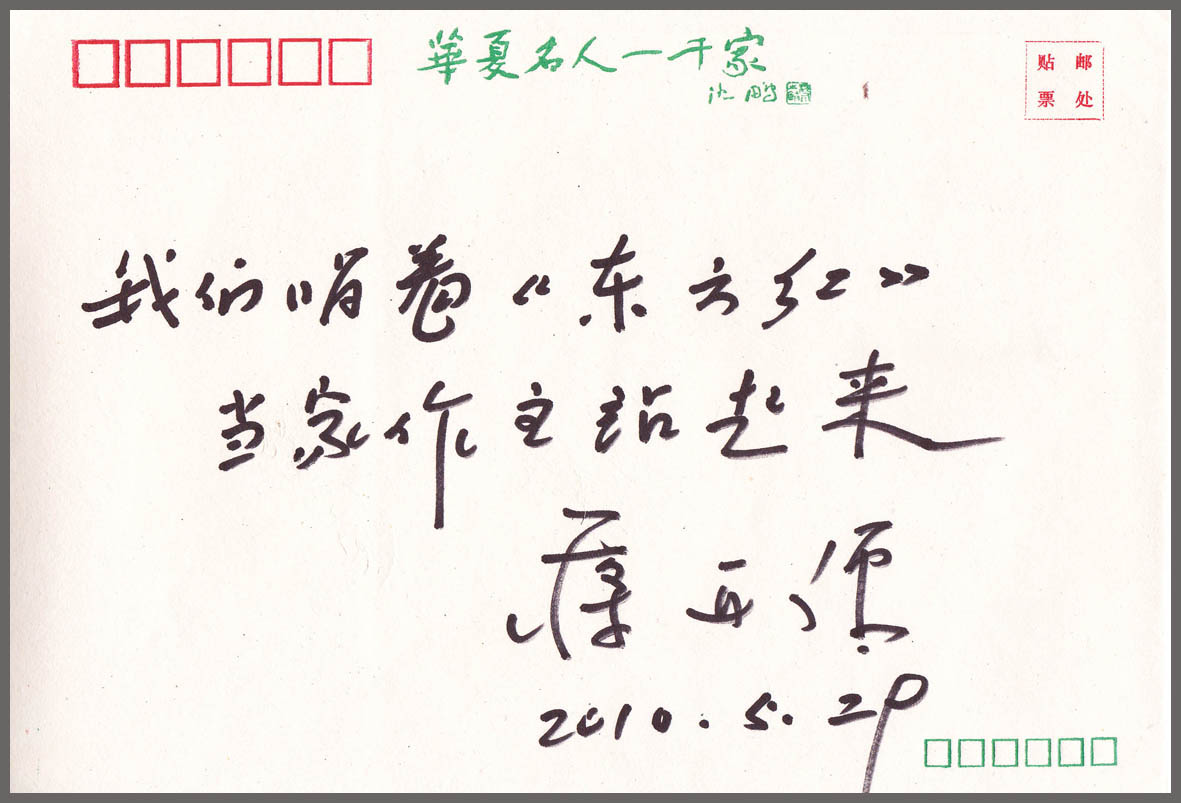 華夏名人一千家
沈鹏
贴 邮
票 处
我们唱着《东方红》
当家作主站起来
蒋开儒
2010.5.29